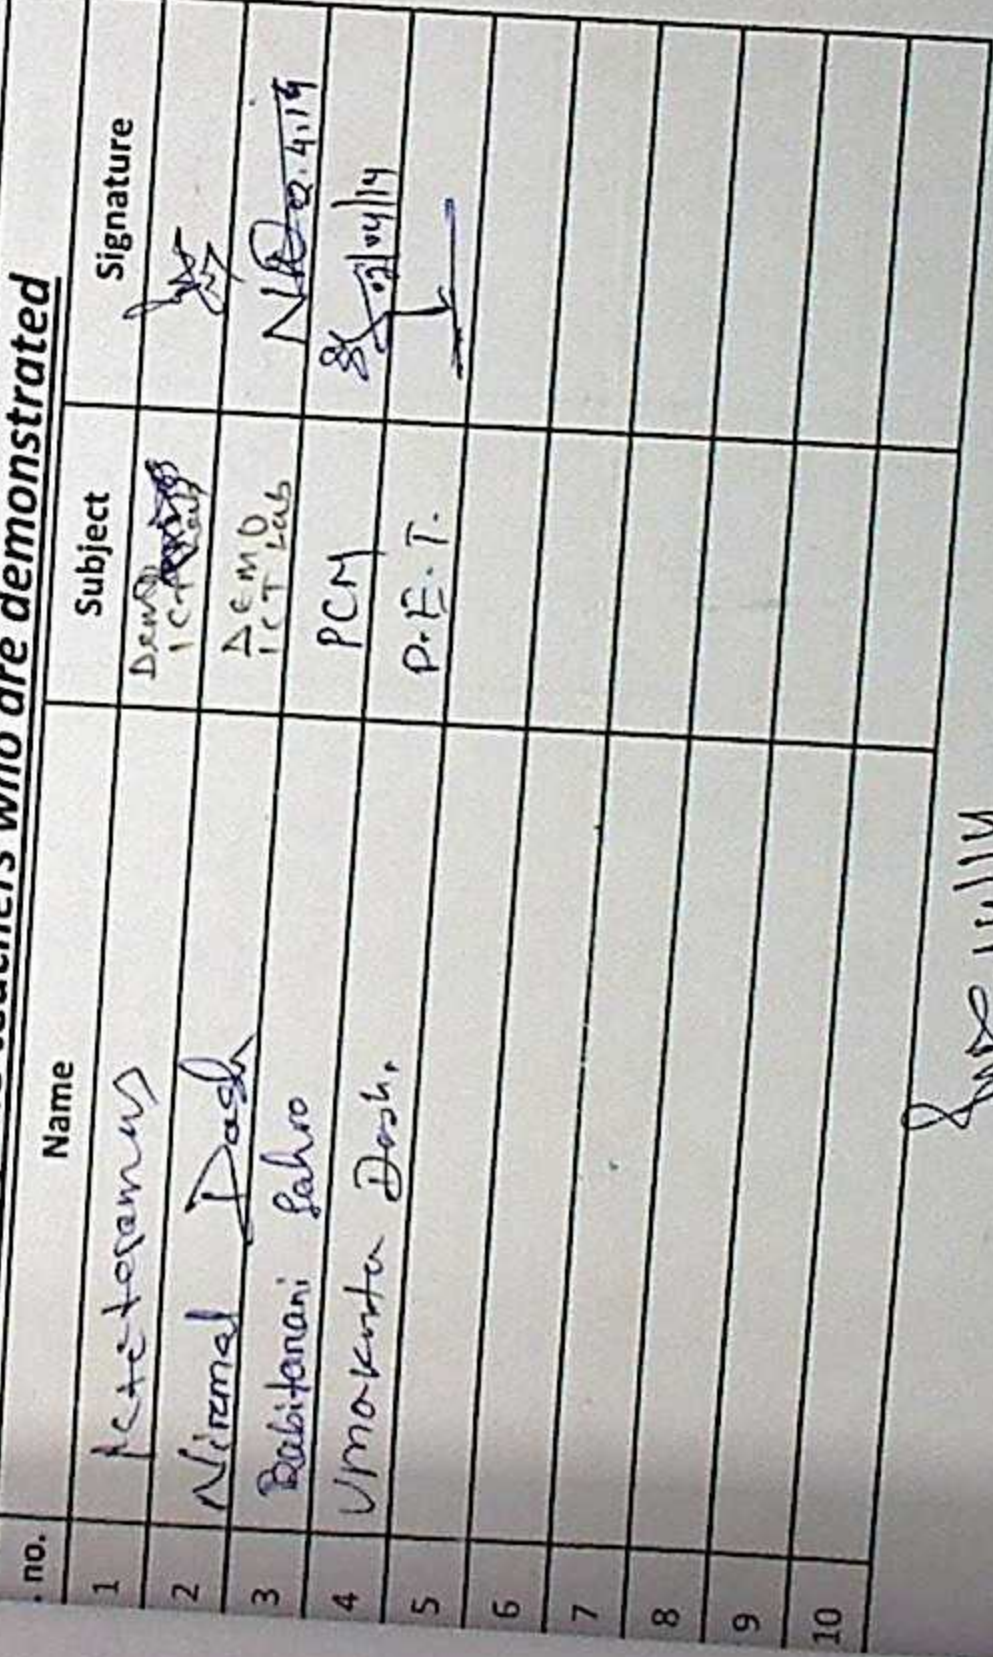 teachers who are demonstrated
. no. Name Subject Signature
1 Demo
ICT
2 Niramal Dash DEMO
ICT Lab 2.4.14
3 Babitarani Sahoo PCM 2/04/14
4 Umakanta Dash. P.E.T.
5
6
7
8
9
10